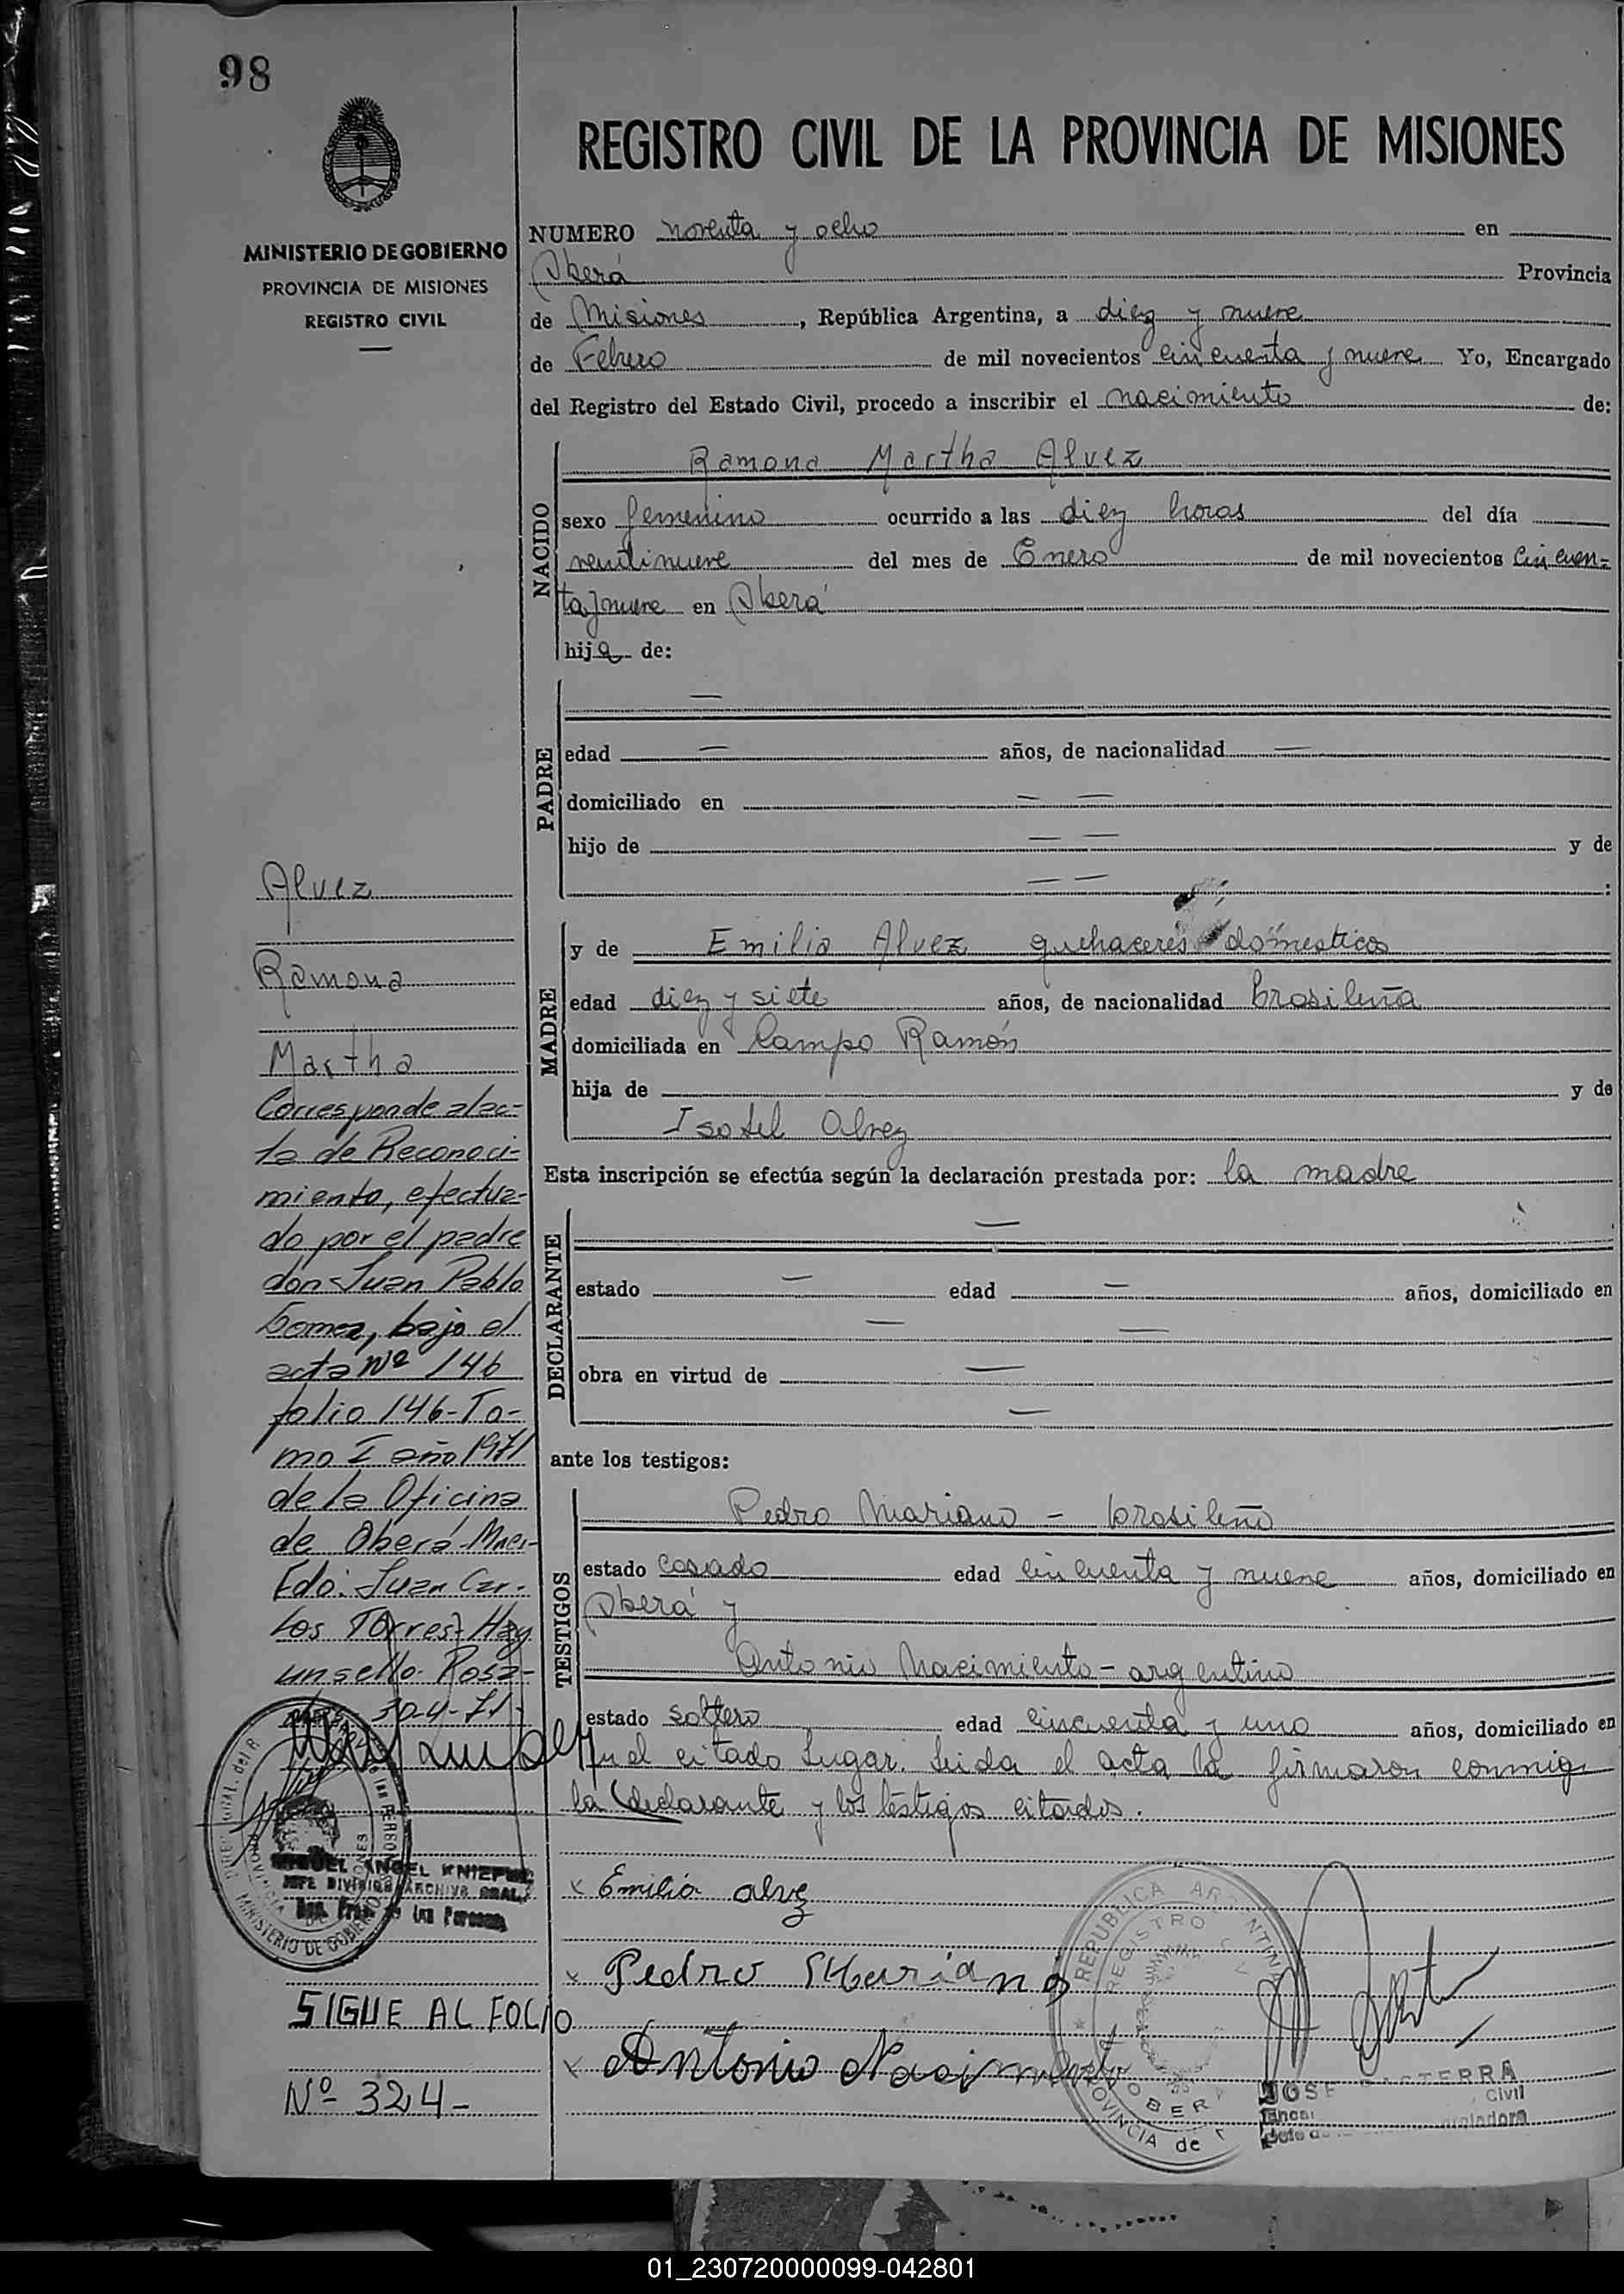 98
MINISTERIO DE GOBIERNO
PROVINCIA DE MISIONES
REGISTRO CIVIL
REGISTRO CIVIL DE LA PROVINCIA DE MISIONES
NUMERO noventa y ocho en
Oberá Provincia
de Misiones, República Argentina, a diez y nueve
de Febrero de mil novecientos cincuenta y nueve Yo, Encargado
del Registro del Estado Civil, procedo a inscribir el nacimiento de:
NACIDO
Ramona Martha Alvez
sexo femenino ocurrido a las diez horas del día
ventinueve del mes de Enero de mil novecientos cincuen-
ta y nueve en Oberá
hija de:
PADRE
—
edad — años, de nacionalidad —
domiciliado en — —
hijo de — — y de
— — :
MADRE
y de Emilia Alvez quehaceres domesticos
edad diez y siete años, de nacionalidad brasileña
domiciliada en Campo Ramón
hija de y de
Alvez
Esta inscripción se efectúa según la declaración prestada por: la madre
DECLARANTE
—
estado — edad — años, domiciliado en
— —
obra en virtud de —
—
ante los testigos:
TESTIGOS
Pedro Mariano - brasileño
estado casado edad cincuenta y nueve años, domiciliado en
Oberá y
Antonio Nacimiento - argentino
estado soltero edad cincuenta y uno años, domiciliado en
en el citado lugar. Leida el acta la firmaron conmigo
la declarante y los testigos citados.
x Emilia alvez
x Pedro Mariano
x Antonio Nacimiento
REPUBLICA ARGENTINA
REGISTRO CIVIL
OBERA
PROVINCIA de
JOSE
Civil
Alvez
Ramona
Martha
Corresponde al ac-
ta de Reconoci-
miento, efectua-
do por el padre
don Juan Pablo
Gomez, bajo el
acta Nº 146
folio 146-To-
mo I año 1971
de la Oficina
de Oberá-Mnes-
Fdo: Juan Car-
los Torres- Hay
un sello. Posa-
das 30-4-71-
MINISTERIO DE GOBIERNO
MIGUEL ANGEL
JEFE DIVISION ARCHIVO GRAL.
de las Personas
SIGUE AL FOLIO
Nº 324-
01_230720000099-042801